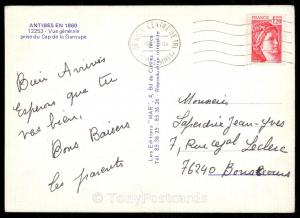 ANTIBES EN 1860
12253 - Vue générale
prise du Cap de la Garoupe
FRANCE
1,20
Bien Arrivés
Espérons que tu
vas bien.
Bons Baisers
les parents
Les Editions "MAR"
Reproduction interdite
Monsieur
Jean-Yves
7, Rue Leclerc
76240 Bonsecours
TonyPostcards